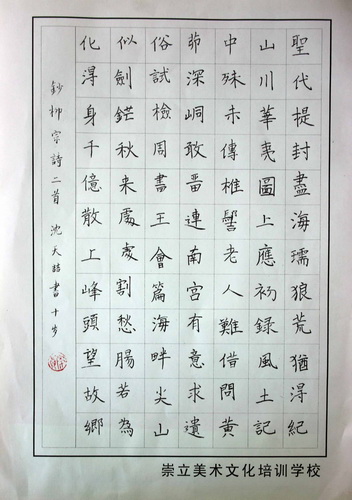 聖代提封盡海壖狼荒猶得紀
山川華夷圖上應初錄風土記
中殊未傳椎髻老人難借問黃
茆深峒敢留連南宮有意求遺
俗試檢周書王會篇海畔尖山
似劍鋩秋來處處割愁腸若為
化得身千億散上峰頭望故鄉
鈔柳宗詩二首 沈天書十岁
崇立美术文化培训学校